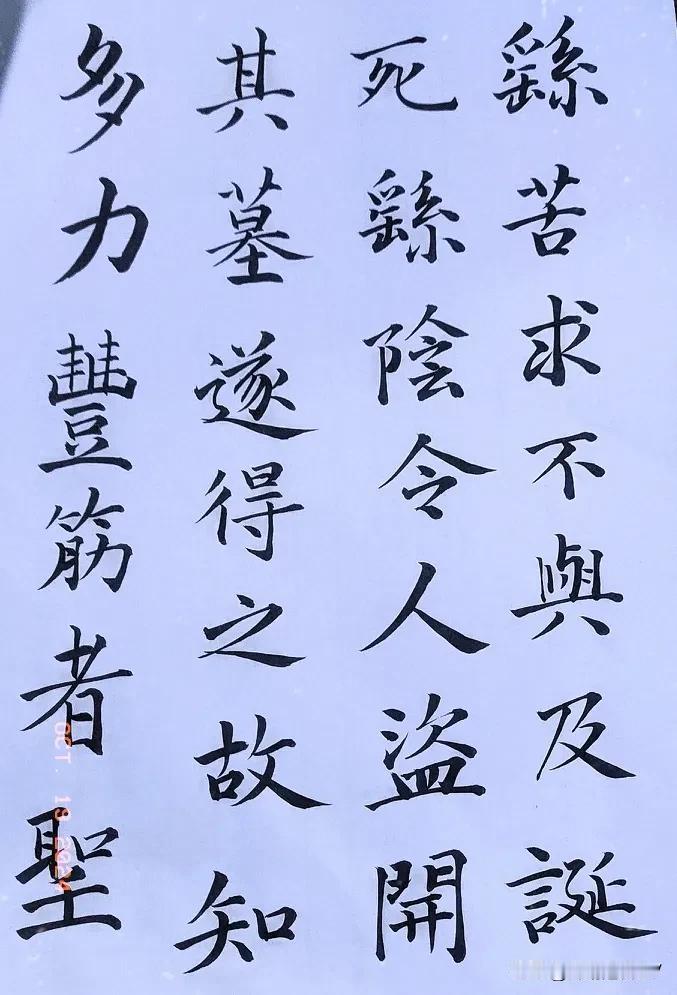 繇苦求不與及誕
死繇陰令人盜開
其墓遂得之故知
多力豐筋者聖
OCT. 19 2024